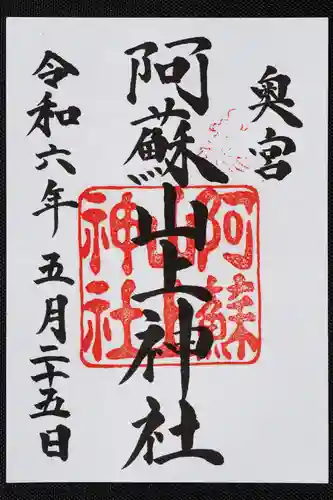 奥宮
阿蘇山上神社
令和六年五月二十五日
阿蘇
山上
神社